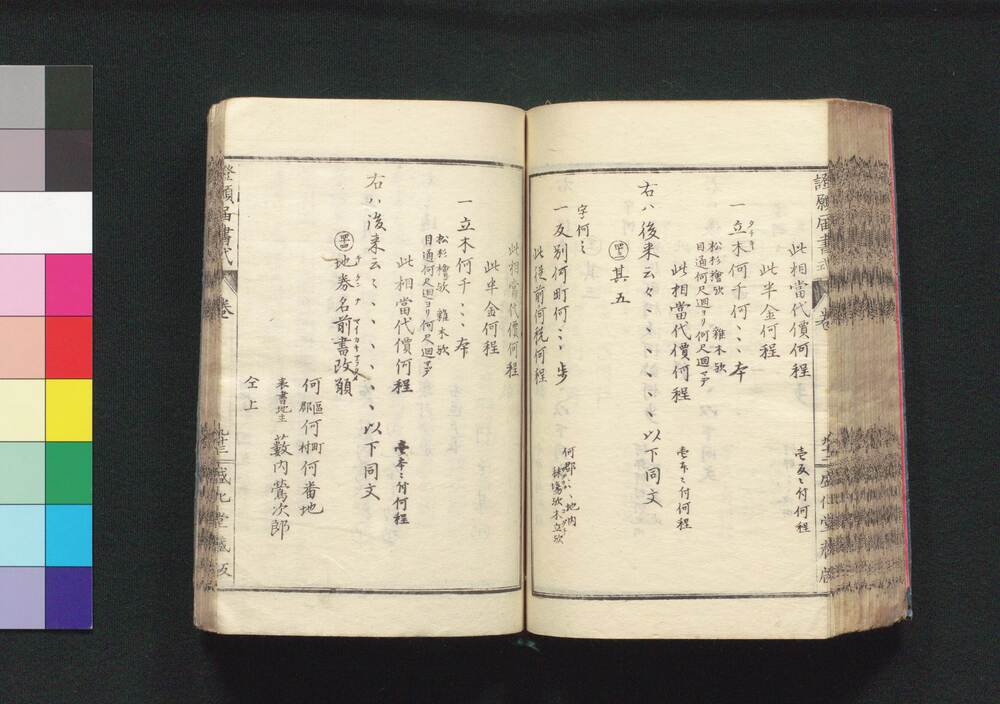 證願届書式
卷
九十二
盛化堂藏版
此相當代價何程
壱反ニ付何程
此半金何程
一立木何千何〻〻本
タチキ
松杉檜欤 雜木欤
目通何尺廻ヨリ何尺廻マデ
此相當代價何程
壱本ニ付何程
右ハ後来云々〻〻〻〻以下同文
其五
字何〻
一反別何町何〻〻歩
何郡〻〻地内
林場欤木立欤
此後前何税何程
此相當代價何程
此半金何程
一立木何千〻〻本
松杉檜欤 雜木欤
目通何尺廻ヨリ何尺廻マデ
此相當代價何程
壱本ニ付何程
右ハ後来云〻〻〻〻〻以下同文
地券名前書改願
何區何町何番地
郡 村
表書地主
藪内鶯次郎
仝上
證願届書式
卷
九十三
盛化堂藏版